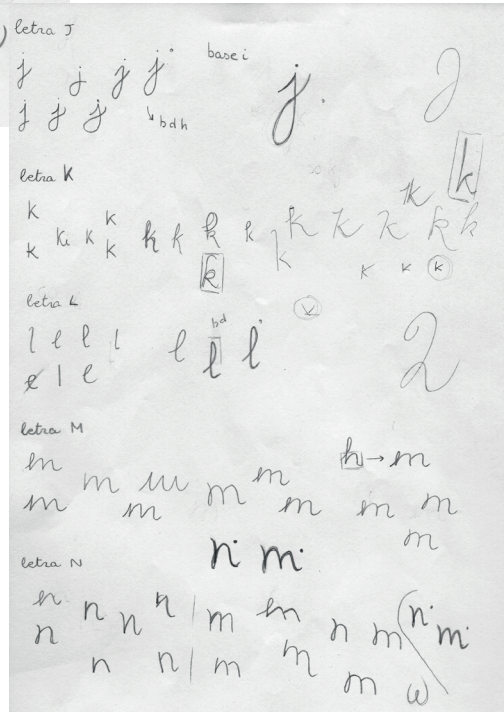 letra J
j j j j base i j J
j j j → bdh
letra K
k k k k k k k k k k k k k k k k k
k k k k k k
letra L
l l l l l bd l l L
l l e
letra M
m m m m m h → m
m m m m m m
n m
letra N
n n n n m m n m n m
n n n m m m w